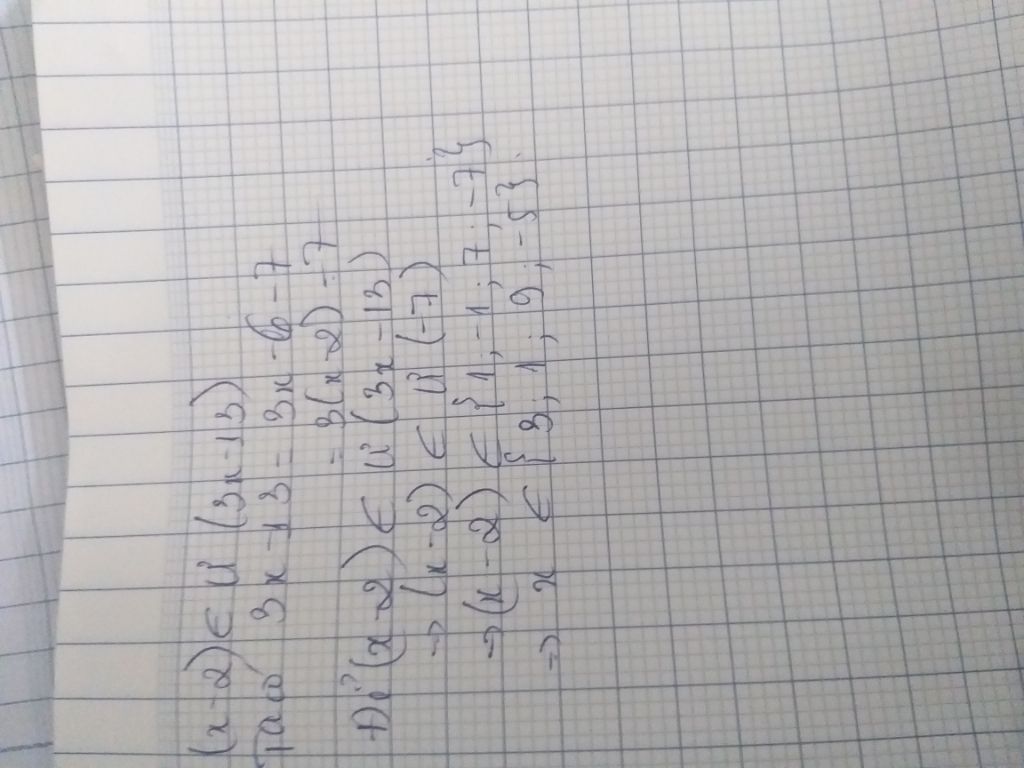 (x-2) ∈ Ư (3x-13)
Ta có 3x-13 = 3x-6-7
= 3(x-2)-7
Để (x-2) ∈ Ư (3x-13)
=> (x-2) ∈ Ư (-7)
=> (x-2) ∈ {1; -1; 7; -7}
=> x ∈ {3; 1; 9; -5}.